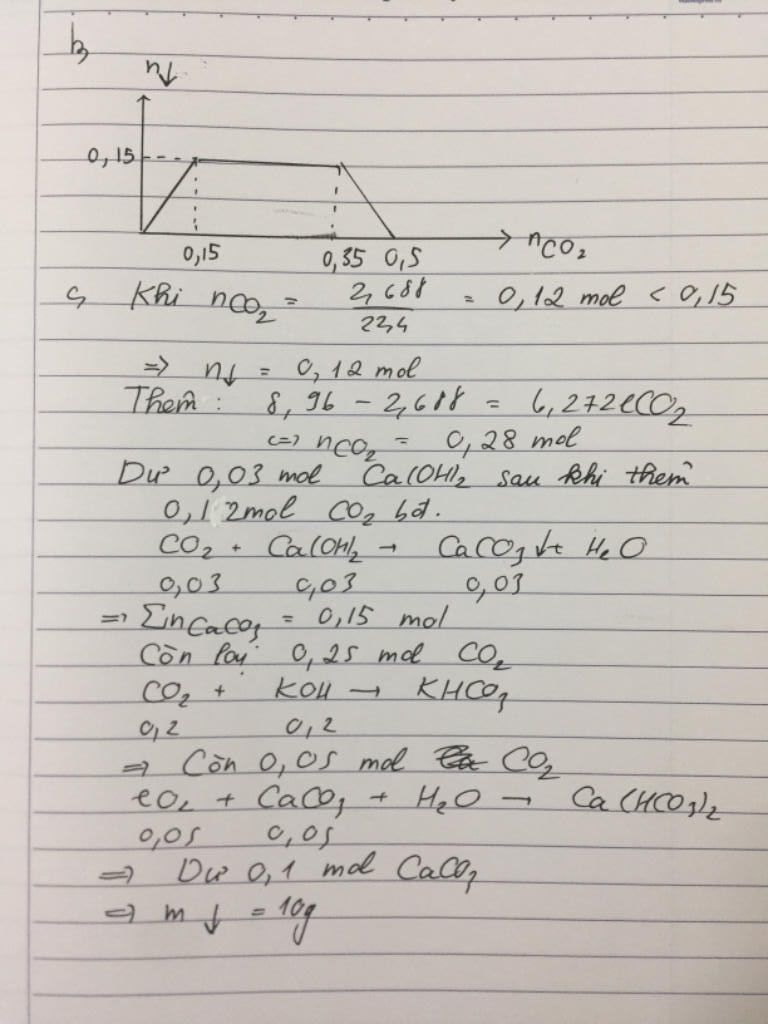 b,
n↓
0,15
0,15 0,35 0,5 nCO2
c, Khi nCO2 = 2,688 / 22,4 = 0,12 mol < 0,15
=> n↓ = 0,12 mol
Thêm : 8,96 - 2,688 = 6,272 l CO2
<=> nCO2 = 0,28 mol
Dư 0,03 mol Ca(OH)2 sau khi thêm
0,12mol CO2 bđ.
CO2 + Ca(OH)2 → CaCO3↓ + H2O
0,03 0,03 0,03
=> ΣnCaCO3 = 0,15 mol
Còn lại 0,25 mol CO2
CO2 + KOH → KHCO3
0,2 0,2
=> Còn 0,05 mol CO2
CO2 + CaCO3 + H2O → Ca(HCO3)2
0,05 0,05
=> Dư 0,1 mol CaCO3
=> m↓ = 10g